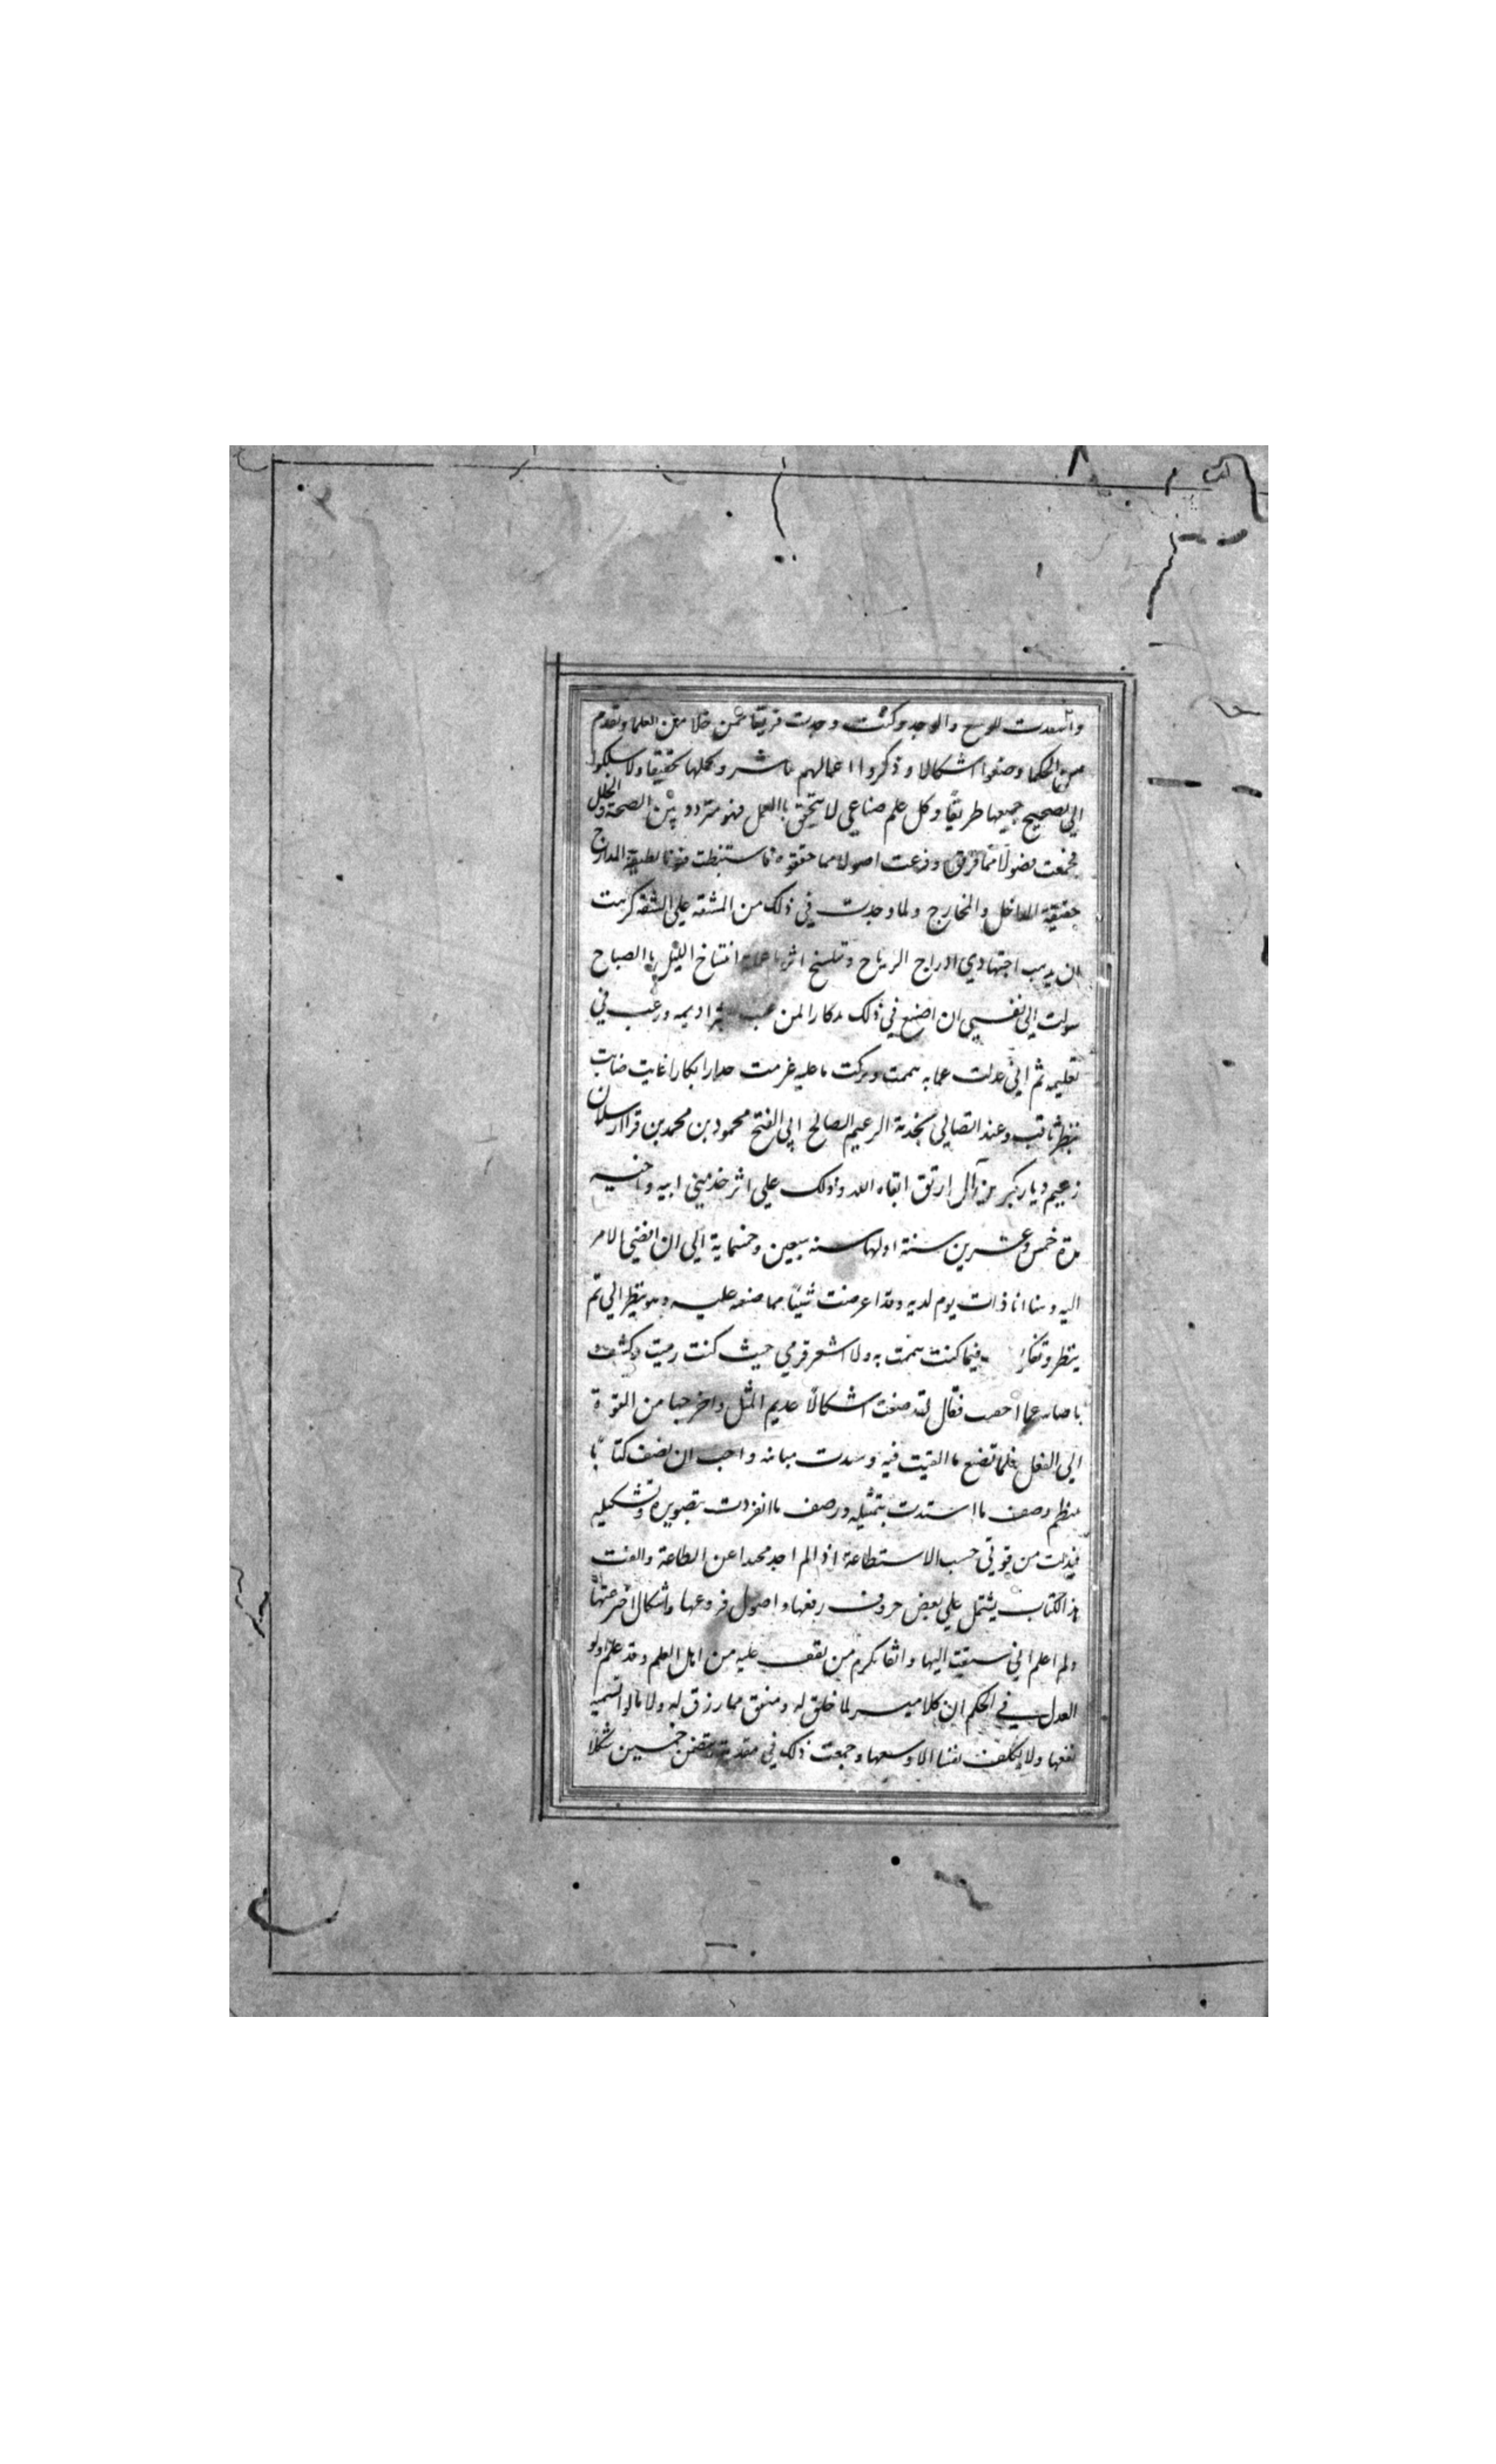 واستنفدت الوسع والوجد وكنت وجدت فريقا ممن خلا من العلما وتقدم
من الحكما وضعوا اشكالا وذكروا اعمالهم ما شروكلها تحقيقا ولا سلكوا
الي تصحيح جميعها طريقا وكل علم صناعي لا يتحقق باالعمل فهو متردد بين الصحة والخلل
فجمعت فصولا مما فرقوه وفرعت اصولا مما حققوه فاستنبطت فنونا لطيفة المدارج
خفيفة المداخل والمخارج ولما وجدت في ذلك من المشقه علي الشقه كرهت
ان يذهب اجتهادي ادراج الرياح وينسخ اثر ما عملته انتساخ الليل باالصباح
سولت الي نفسي ان اضع في ذلك مدكارا لمن يحب اديمه ورغب في
تعليمه ثم اني عدلت عما به هممت وتركت ما عليه عزمت حدارا بكارا غايت ضايب
بنظر ثاقب وعند اتصالي بخدمة الزعيم الصالح ابي الفتح محمود بن محمد بن قرا ارسلان
زعيم ديار بكر من آل ارتق ابقاه الله وذلك علي اثر خدمتي ابيه واخيه
مدة خمس وعشرين سنة اولها سنه سبعين وخمسماية الي ان افضي الامر
اليه وبينا انا ذات يوم لديه وقد اعرضت شيئا مما صنعه عليه وهو ينظر الي ثم
ينظر وتفكر فيما كنت هممت به ولا اشعر فرمي حيث كنت رميت وكشف
باصابه عما اخفيت فقال لقد صنعت اشكالا عديم المثل واخرجها من القوة
الي الفعل فلا تضع ما القيت فيه وشدت مبانه واحب ان تصنف كتابا
ينظم وصف ما استبدت بتمثيله ورصف ما انفردت بتصويره وتشكيله
فبذلت من قوتي حسب الاستطاعة اذ لم اجد محيدا عن الطاعة والفت
هذا الكتاب يشتمل علي بعض حروف رفعها واصول فروعها واشكال اخترعتها
ولم اعلم اني سبقت اليها واثقا بكرم من يقف عليه من اهل العلم وقد علم اولو
العدل في الحكم ان كلا ميسر لما خلق له ومنفق مما رزق له ولا
نفعها ولا يكلف نفسا الا وسعها وجمعت ذلك في مقدمة تتضمن خمسين شكلا